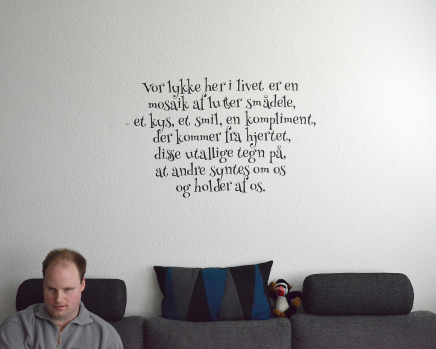 Vor lykke her i livet er en
mosaik af lutter smådele,
- et kys, et smil, en kompliment,
der kommer fra hjertet,
disse utallige tegn på,
at andre syntes om os
og holder af os.